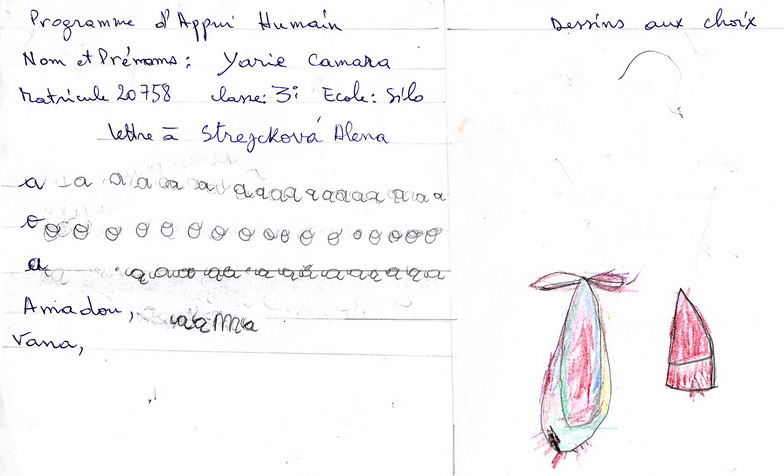 Programme d'Appui Humain
Nom et Prénoms : Yarie Camara
Matricule 20758 classe: 3è Ecole: Silo
lettre à Strejcková Alena
a a a a a a a a a a a a a a a a a a
o o o o o o o o o o o o o o o o o
a a a a a a a a a a a a a a
Amadou,
Vana,
Dessins aux choix